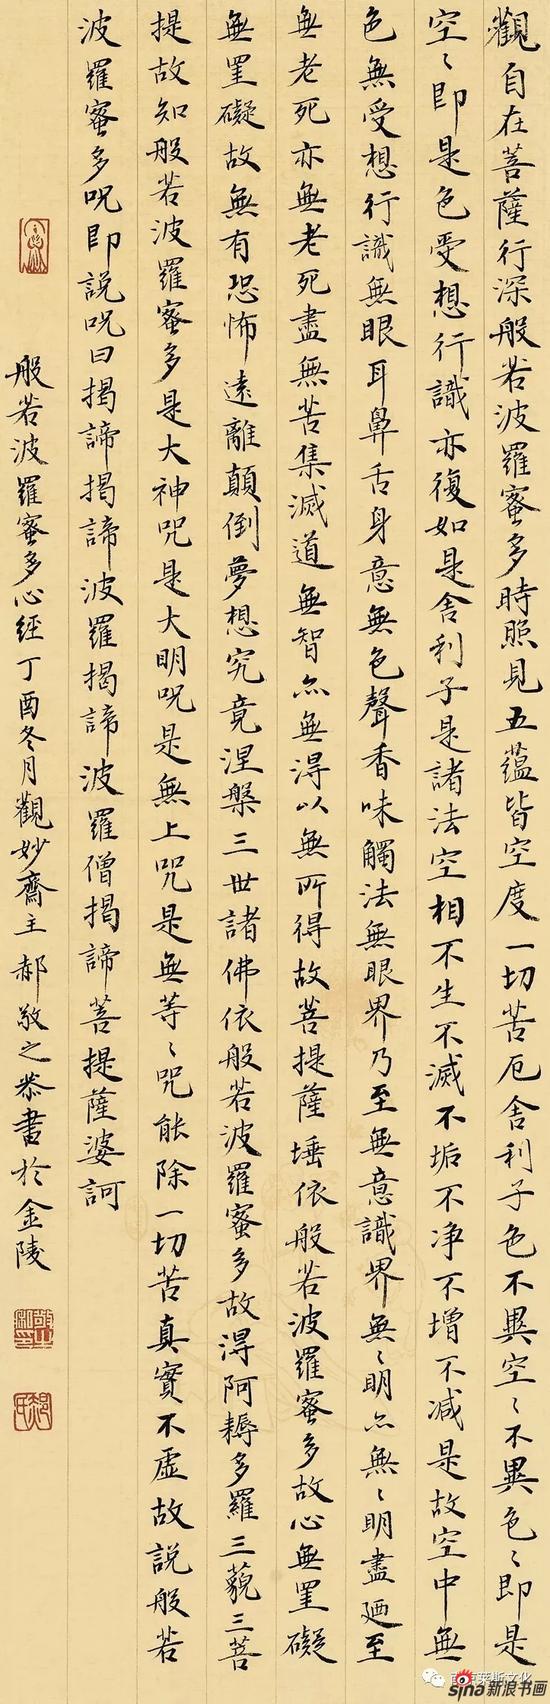 觀自在菩薩行深般若波羅蜜多時照見五蘊皆空度一切苦厄舍利子色不異空〻不異色〻即是
空〻即是色受想行識亦復如是舍利子是諸法空相不生不滅不垢不淨不增不減是故空中無
色無受想行識無眼耳鼻舌身意無色聲香味觸法無眼界乃至無意識界無〻明亦無〻明盡廼至
無老死亦無老死盡無苦集滅道無智亦無得以無所得故菩提薩埵依般若波羅蜜多故心無罣礙
無罣礙故無有恐怖遠離顛倒夢想究竟涅槃三世諸佛依般若波羅蜜多故得阿耨多羅三藐三菩
提故知般若波羅蜜多是大神咒是大明咒是無上咒是無等〻咒能除一切苦真實不虛故說般若
波羅蜜多咒即說咒曰揭諦揭諦波羅揭諦波羅僧揭諦菩提薩婆訶
般若波羅蜜多心經丁酉冬月觀妙齋主郝敬之恭書於金陵
莱斯文化
sina新浪书画